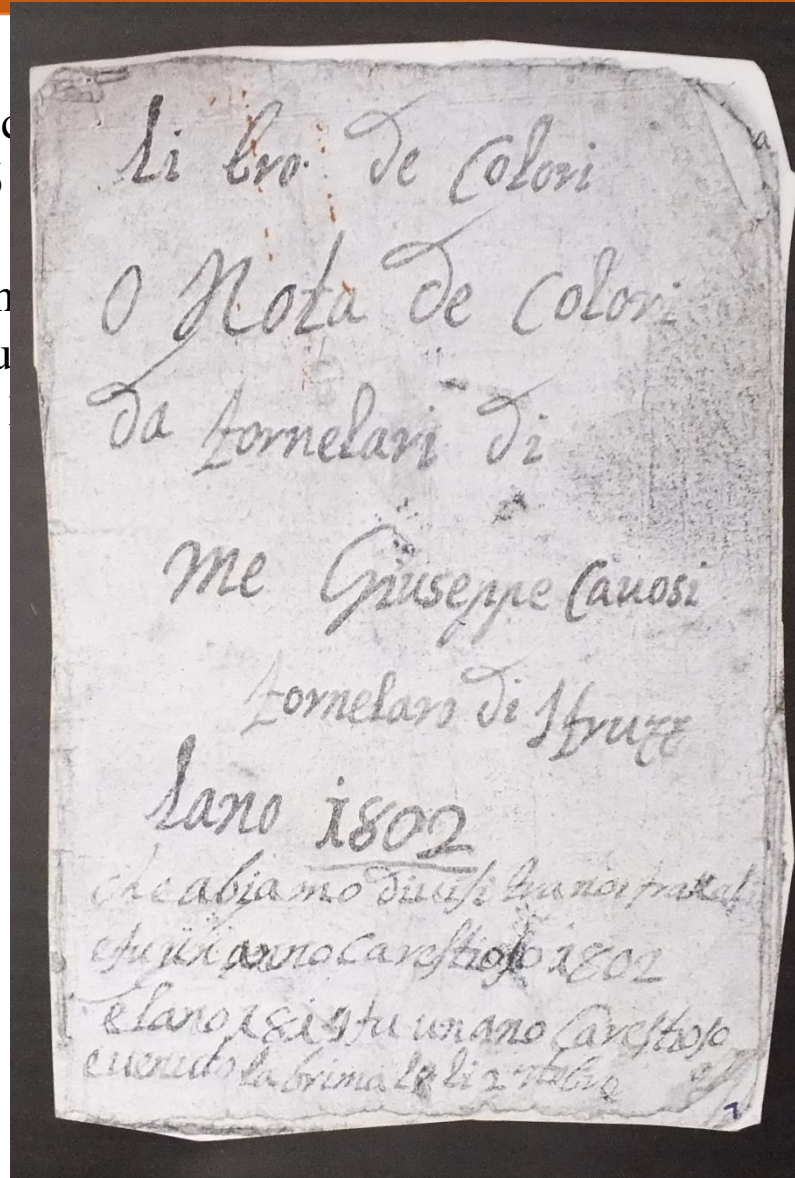 Li bro de Colori
O Nota de Colori
da fornelari di
me Giuseppe Cauosi
fornelaro di
lano 1802
che abiamo
e fu un anno Carestioso 1802
e lano fu un ano Carestioso
e uenuto la brima li